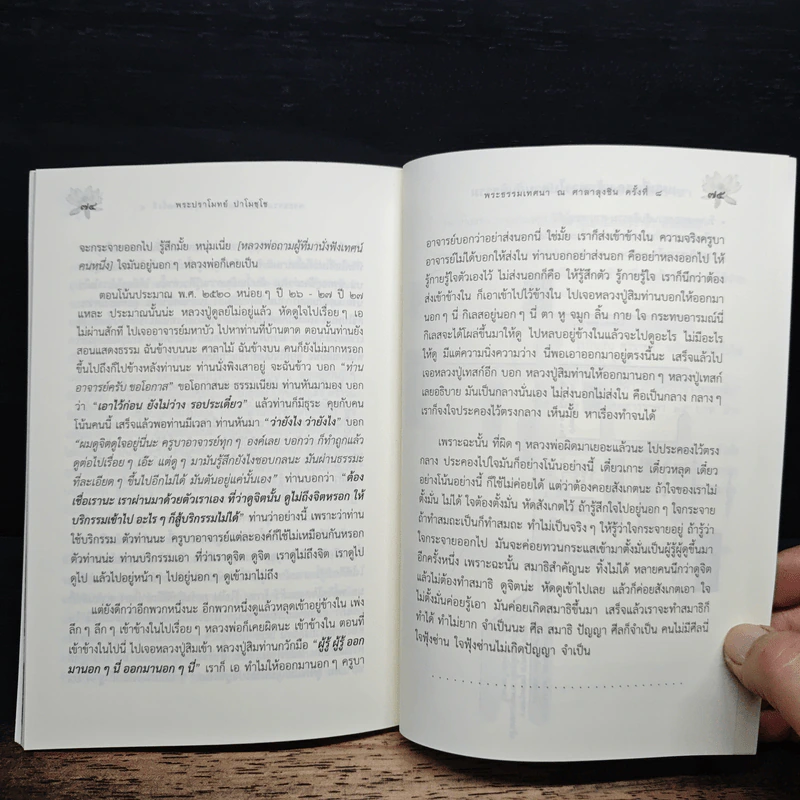 ๗๔
พระปราโมทย์ ปาโมชฺโช
จะกระจายออกไป รู้สึกมั้ย หนุ่มเนี่ย (หลวงพ่อถามผู้ที่มานั่งฟังเทศน์
คนหนึ่ง) ใจมันอยู่นอกๆ หลวงพ่อก็เคยเป็น
ตอนโน้นประมาณ พ.ศ. ๒๕๒๐ หน่อยๆ ปี ๒๖ - ๒๗ ปี ๒๗
แหละ ประมาณนั้นน่ะ หลวงปู่ดูลย์ไม่อยู่แล้ว หัดดูใจไปเรื่อยๆ เอ
ไม่ผ่านสักที ไปเจออาจารย์มหาบัว ไปหาท่านที่บ้านตาด ตอนนั้นท่านยัง
สอนแสดงธรรม ฉันข้างบนนะ ศาลาไม้ ฉันข้างบน คนก็ยังไม่มากหรอก
ขึ้นไปถึงก็ไปข้างหลังท่านนะ ท่านนั่งพิงเสาอยู่ จะฉันข้าว บอก "ท่าน
อาจารย์ครับ ขอโอกาส" ขอโอกาสนะ ธรรมเนียม ท่านหันมามอง บอก
ว่า "เอาไว้ก่อน ยังไม่ว่าง รอประเดี๋ยว" แล้วท่านก็มีธุระ คุยกับคน
โน้นคนนี้ เสร็จแล้วพอท่านมีเวลา ท่านหันมา "ว่ายังไง ว่ายังไง" บอก
"ผมดูจิตดูใจอยู่นี่นะ ครูบาอาจารย์ทุกๆ องค์เลย บอกว่า ก็ทำถูกแล้ว
ดูต่อไปเรื่อยๆ เอ๊ะ แต่ดูๆ มามันรู้สึกยังไงชอบกลนะ มันผ่านธรรมะ
ที่ละเอียดๆ ขึ้นไปอีกไม่ได้ มันตันอยู่แค่นั้นเอง" ท่านบอกว่า "ต้อง
เชื่อเรานะ เราผ่านมาด้วยตัวเราเอง ที่ว่าดูจิตนั้น ดูไม่ถึงจิตหรอก ให้
บริกรรมเข้าไป อะไรๆ ก็สู้บริกรรมไม่ได้" ท่านว่าอย่างนี้ เพราะว่าท่าน
ใช้บริกรรม ตัวท่านนะ ครูบาอาจารย์แต่ละองค์ก็ใช้ไม่เหมือนกันหรอก
ตัวท่านน่ะ ท่านบริกรรมเอา ที่ว่าเราดูจิต ดูจิต เราดูไม่ถึงจิต เราดูไป
ดูไป แล้วไปอยู่หน้าๆ ไปอยู่นอกๆ ดูเข้ามาไม่ถึง
แต่ยังดีกว่าอีกพวกหนึ่งนะ อีกพวกหนึ่งดูแล้วหลุดเข้าอยู่ข้างใน เพ่ง
ลึกๆ ลึกๆ เข้าข้างในไปเรื่อยๆ หลวงพ่อก็เคยผิดนะ เข้าข้างใน ตอนที่
เข้าข้างในไปนี่ ไปเจอหลวงปู่สิมเข้า หลวงปู่สิมท่านกวักมือ "ผู้รู้ ผู้รู้ ออก
มานอกๆ นี่ ออกมานอกๆ นี่" เราก็ เอ ทำไมให้ออกมานอกๆ ครูบา
พระธรรมเทศนา ณ ศาลาลุงชิน ครั้งที่ ๘
๗๕
อาจารย์บอกว่าอย่าส่งนอกนี่ ใช่มั้ย เราก็ส่งเข้าข้างใน ความจริงครูบา
อาจารย์ไม่ได้บอกให้ส่งใน ท่านบอกอย่าส่งนอก คืออย่าหลงออกไป ให้
รู้กายรู้ใจตัวเองไว้ ไม่ส่งนอกก็คือ ให้รู้สึกตัว รู้กายรู้ใจ เราก็นึกว่าต้อง
ส่งเข้าข้างใน ก็เอาเข้าไปไว้ข้างใน ไปเจอหลวงปู่สิมท่านบอกให้ออกมา
นอกๆ นี่ กิเลสอยู่นอกๆ นี่ ตา หู จมูก ลิ้น กาย ใจ กระทบอารมณ์นี่
กิเลสจะได้โผล่ขึ้นมาให้ดู ไปหลบอยู่ข้างในแล้วจะไปดูอะไร ไม่มีอะไร
ให้ดู มีแต่ความนิ่งความว่าง นี่พอเอาออกมาอยู่ตรงนี้นะ เสร็จแล้วไป
เจอหลวงปู่เทสก์อีก บอก หลวงปู่สิมท่านให้ออกมานอกๆ หลวงปู่เทสก์
เลยอธิบาย มันเป็นกลางนั่นเอง ไม่ส่งนอกไม่ส่งใน คือเป็นกลาง กลางๆ
เราก็จงใจประคองไว้ตรงกลาง เห็นมั้ย หาเรื่องทำจนได้
เพราะฉะนั้น ที่ผิดๆ หลวงพ่อผิดมาเยอะแล้วนะ ไปประคองไว้ตรง
กลาง ประคองไปใจมันก็อย่างโน้นอย่างนี้ เดี๋ยวเกาะ เดี๋ยวหลุด เดี๋ยว
อย่างโน้นอย่างนี้ ก็ใช้ไม่ค่อยได้ แต่ว่าต้องคอยสังเกตนะ ถ้าใจของเราไม่
ตั้งมั่น ไม่ได้ ใจต้องตั้งมั่น หัดสังเกตไว้ ถ้ารู้สึกใจไปอยู่นอกๆ ใจกระจาย
ถ้าทำสมถะเป็นก็ทำสมถะ ทำไม่เป็นจริงๆ ให้รู้ว่าใจกระจายอยู่ ถ้ารู้ว่า
ใจกระจายออกไป มันจะค่อยทวนกระแสเข้ามาตั้งมั่นเป็นผู้รู้ผู้ดูขึ้นมา
อีกครั้งหนึ่ง เพราะฉะนั้น สมาธิสำคัญนะ ทิ้งไม่ได้ หลายคนนึกว่าดูจิต
แล้วไม่ต้องทำสมาธิ ดูจิตน่ะ หัดดูเข้าไปเลย แล้วก็ค่อยสังเกตเอา ใจ
ไม่ตั้งมั่นค่อยรู้เอา มันค่อยเกิดสมาธิขึ้นมา เสร็จแล้วเราจะทำสมาธิก็
ทำได้ ทำไม่ยาก จำเป็นนะ ศีล สมาธิ ปัญญา ศีลก็จำเป็น คนไม่มีศีลนี่
ใจฟุ้งซ่าน ใจฟุ้งซ่านไม่เกิดปัญญา จำเป็น